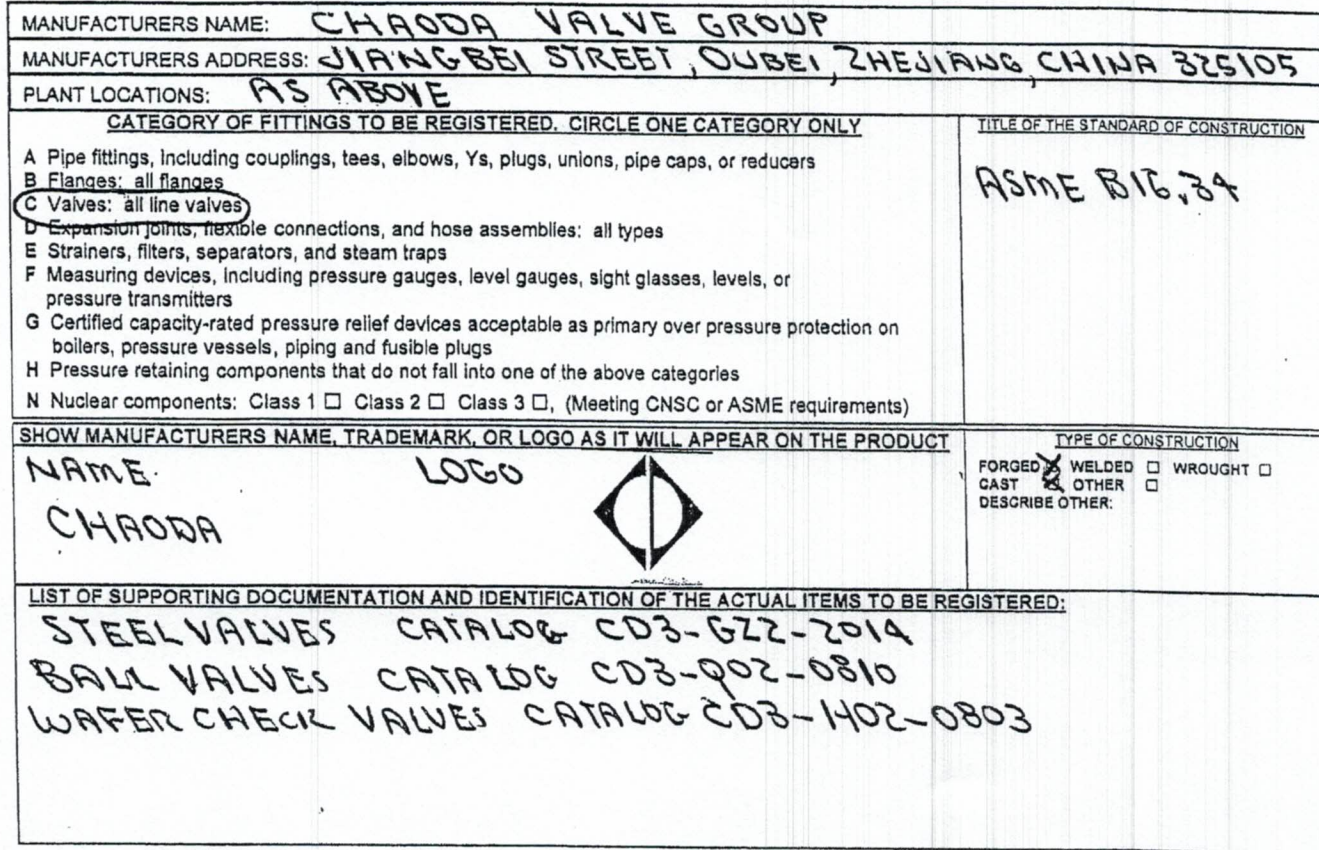 MANUFACTURERS NAME: CHAODA VALVE GROUP
MANUFACTURERS ADDRESS: JIANGBEI STREET, OUBEI, ZHEJIANG, CHINA 325105
PLANT LOCATIONS: AS ABOVE
CATEGORY OF FITTINGS TO BE REGISTERED. CIRCLE ONE CATEGORY ONLY
A Pipe fittings, including couplings, tees, elbows, Ys, plugs, unions, pipe caps, or reducers
B Flanges: all flanges
C Valves: all line valves
D Expansion joints, flexible connections, and hose assemblies: all types
E Strainers, filters, separators, and steam traps
F Measuring devices, including pressure gauges, level gauges, sight glasses, levels, or
pressure transmitters
G Certified capacity-rated pressure relief devices acceptable as primary over pressure protection on
boilers, pressure vessels, piping and fusible plugs
H Pressure retaining components that do not fall into one of the above categories
N Nuclear components: Class 1 ☐ Class 2 ☐ Class 3 ☐, (Meeting CNSC or ASME requirements)
TITLE OF THE STANDARD OF CONSTRUCTION
ASME B16.34
SHOW MANUFACTURERS NAME, TRADEMARK, OR LOGO AS IT WILL APPEAR ON THE PRODUCT
NAME. LOGO
CHAODA
TYPE OF CONSTRUCTION
FORGED ☒ WELDED ☐ WROUGHT ☐
CAST ☒ OTHER ☐
DESCRIBE OTHER:
LIST OF SUPPORTING DOCUMENTATION AND IDENTIFICATION OF THE ACTUAL ITEMS TO BE REGISTERED:
STEEL VALVES CATALOG CD3-GZ2-2014
BALL VALVES CATALOG CD3-Q02-0810
WAFER CHECK VALVES CATALOG CD3-H02-0803